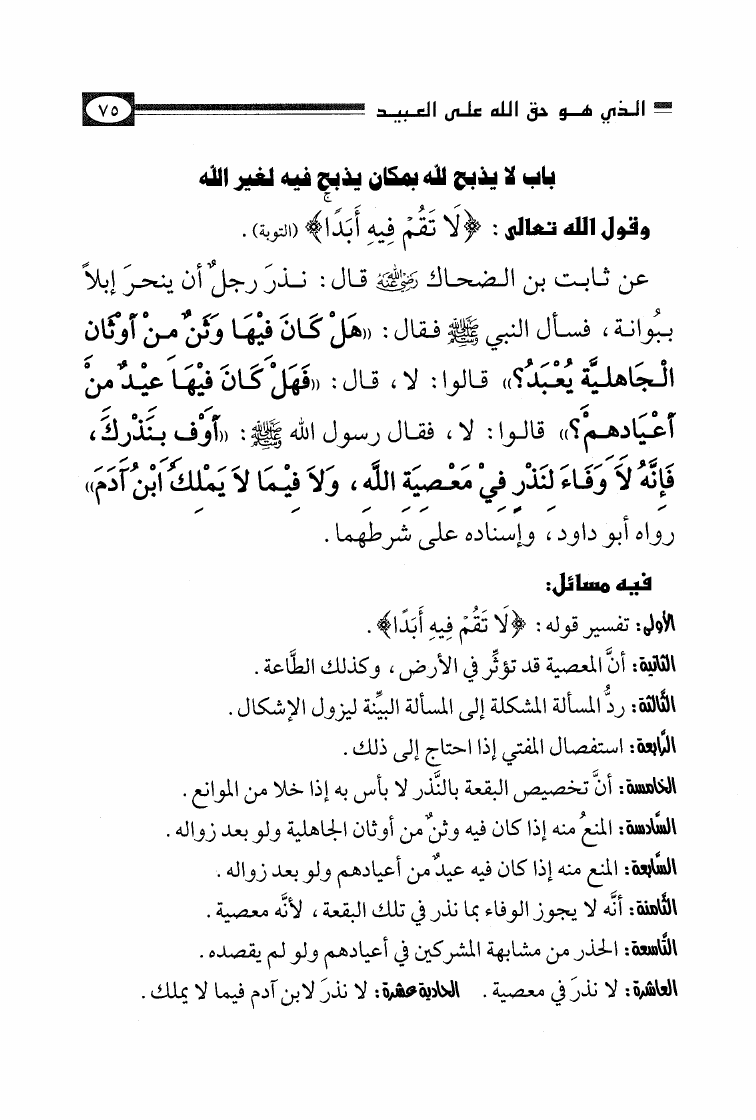 الذي هو حق الله على العبيد ٧٥
باب لا يذبح لله بمكان يذبح فيه لغير الله
وقول الله تعالى : ﴿لَا تَقُمْ فِيهِ أَبَدًا﴾ (التوبة) .
عن ثابت بن الضحاك رضي الله عنه قال : نذرَ رجلٌ أن ينحرَ إبلاً
بِبُوانة ، فسأل النبي ﷺ فقال : «هَلْ كَانَ فِيْهَا وَثَنٌ مِنْ أَوْثَانِ
الْجَاهليَّةِ يُعْبَدُ؟» قالوا : لا ، قال : «فَهَلْ كَانَ فِيْهَا عيْدٌ منْ
أَعْيَادهمْ؟» قالوا : لا ، فقال رسول الله ﷺ : «أَوْفِ بنَذْركَ ،
فَإنَّهُ لاَ وَفَاءَ لِنَذْرٍ فِيْ مَعْصِيَةِ اللَّهِ ، وَلاَ فِيْمَا لاَ يَمْلِكُ ابْنُ آدَمَ»
رواه أبو داود ، وإسناده على شرطهما .
فيه مسائل :
الأولى : تفسير قوله : ﴿لَا تَقُمْ فِيهِ أَبَدًا﴾ .
الثانية : أنَّ المعصية قد تؤثِّر في الأرض ، وكذلك الطَّاعة .
الثَّالثة : ردُّ المسألة المشكلة إلى المسألة البيِّنة ليزول الإشكال .
الرَّابعة : استفصال المفتي إذا احتاج إلى ذلك .
الخامسة : أنَّ تخصيص البقعة بالنَّذر لا بأس به إذا خلا من الموانع .
السَّادسة : المنعُ منه إذا كان فيه وثنٌ من أوثان الجاهلية ولو بعد زواله .
السَّابعة : المنع منه إذا كان فيه عيدٌ من أعيادهم ولو بعد زواله .
الثَّامنة : أنَّه لا يجوز الوفاء بما نذر في تلك البقعة ، لأنَّه معصية .
التَّاسعة : الحذر من مشابهة المشركين في أعيادهم ولو لم يقصده .
العاشرة : لا نذرَ في معصية . الحادية عشرة : لا نذرَ لابن آدم فيما لا يملك .